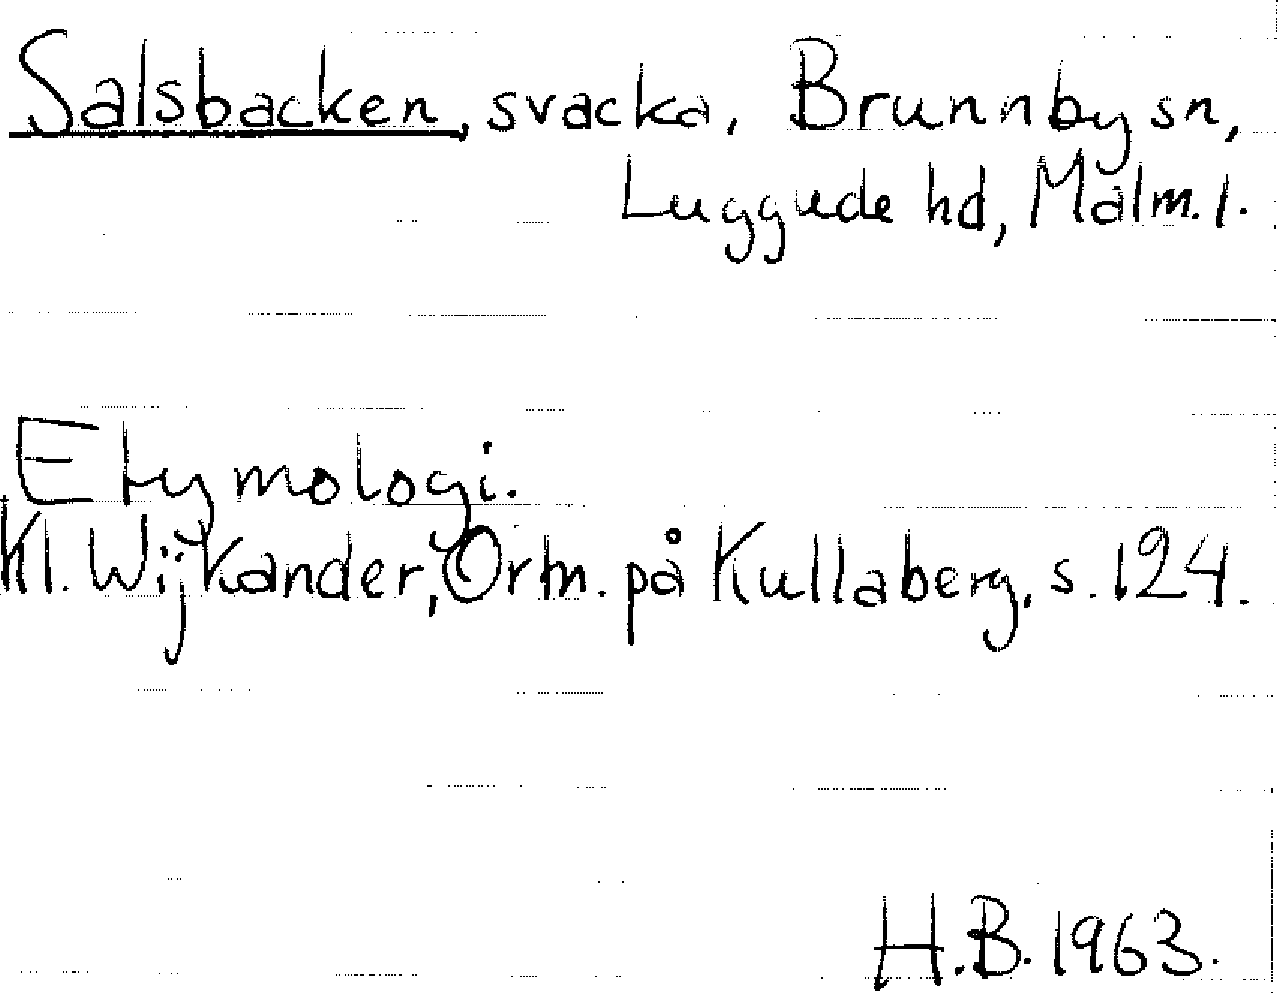 Salsbacken, svacka, Brunnby sn,
Luggude hd, Malm. l.
Etymologi.
Kl. Wijkander, Orm. på Kullaberg, s. 124.
H.B. 1963.